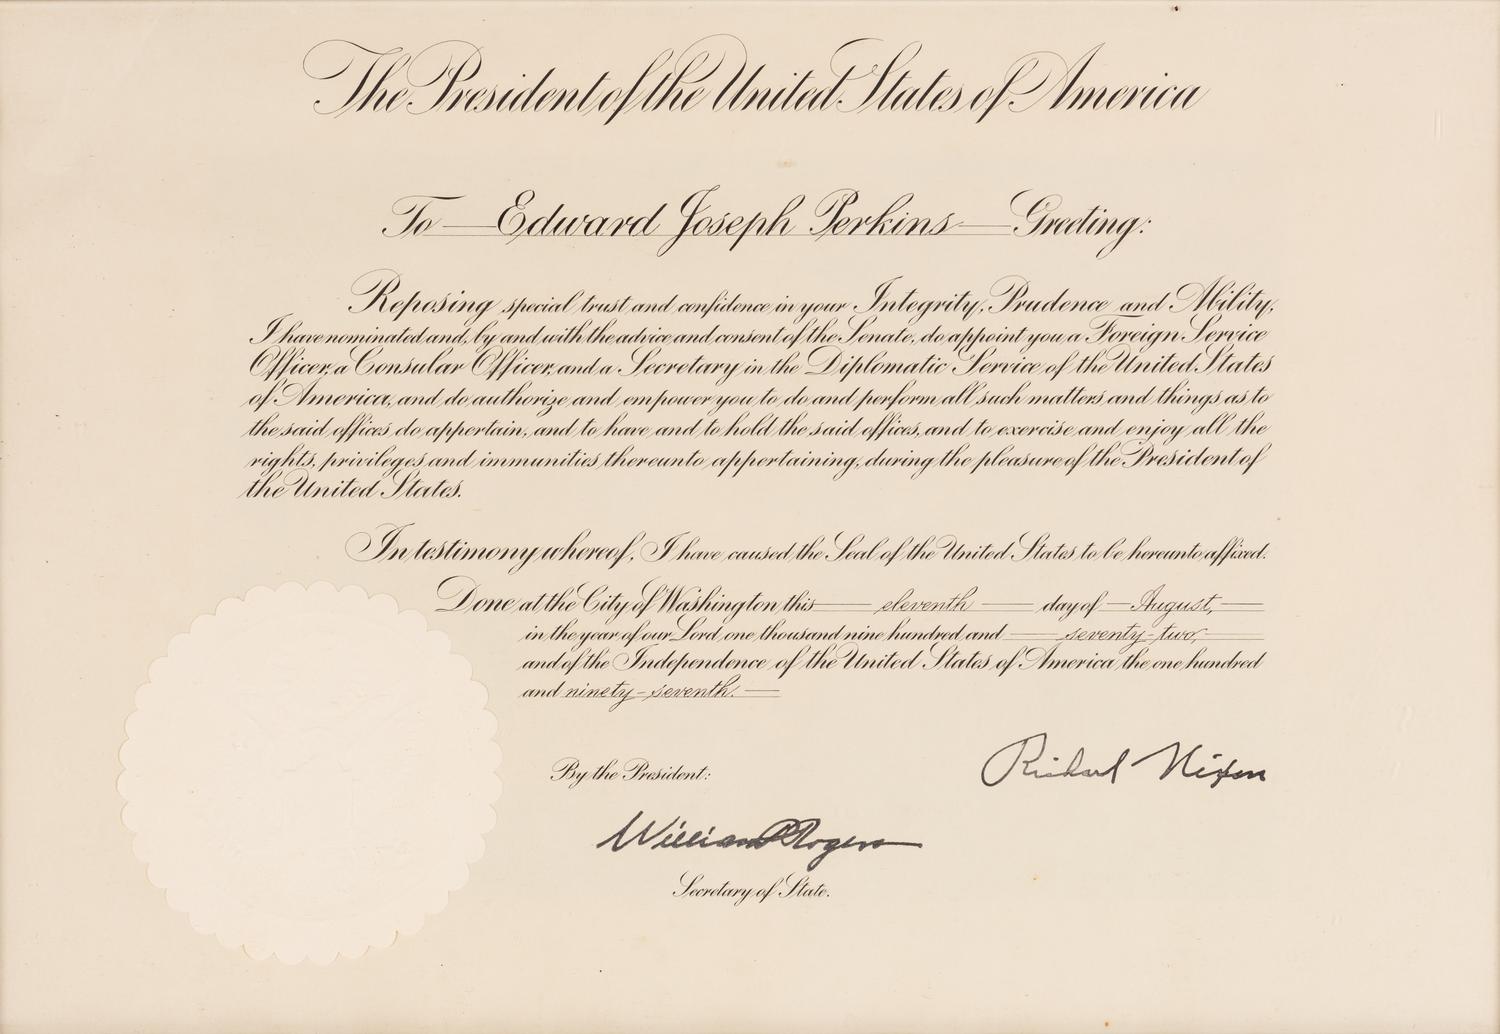 The President of the United States of America
To — Edward Joseph Perkins — Greeting:
Reposing special trust and confidence in your Integrity, Prudence and Ability,
I have nominated and, by and with the advice and consent of the Senate, do appoint you a Foreign Service
Officer, a Consular Officer, and a Secretary in the Diplomatic Service of the United States
of America, and do authorize and empower you to do and perform all such matters and things as to
the said offices do appertain, and to have and to hold the said offices, and to exercise and enjoy all the
rights, privileges and immunities thereunto appertaining, during the pleasure of the President of
the United States.
In testimony whereof, I have caused the Seal of the United States to be hereunto affixed.
Done at the City of Washington this — eleventh — day of — August, —
in the year of our Lord one thousand nine hundred and — seventy-two, —
and of the Independence of the United States of America the one hundred
and ninety-seventh. —
Richard Nixon
By the President:
William P Rogers
Secretary of State.